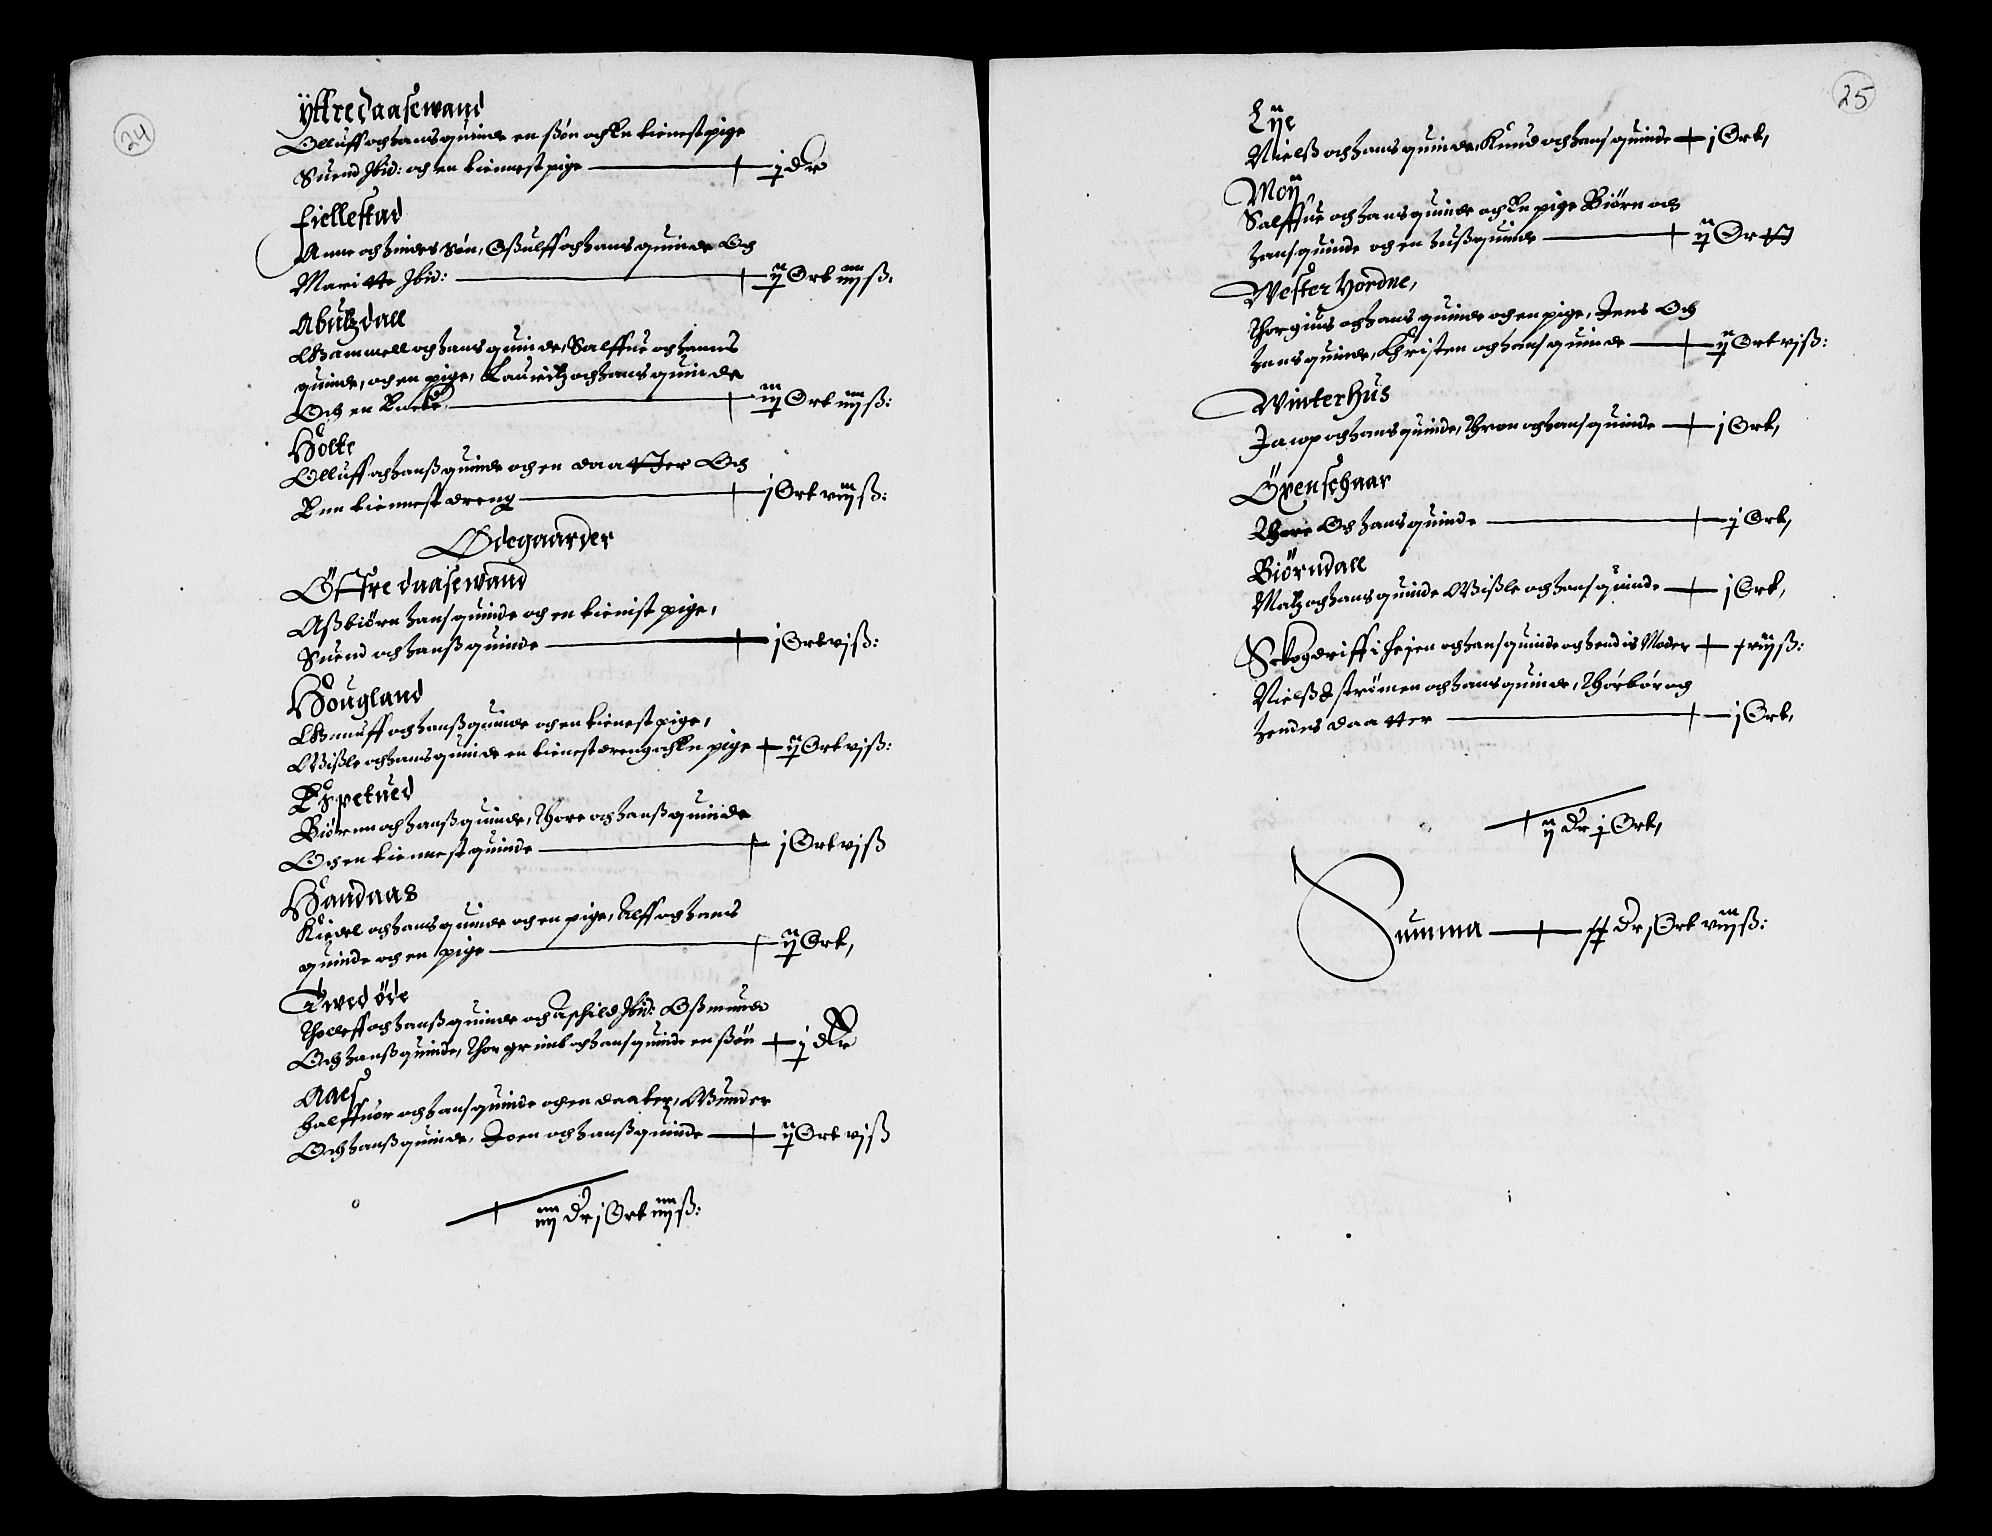 24
Yffredaasewand
Olluff och hans quinde en ßøn och en tienest pige
Suend Ibid: och en tiennest pige j dr
Fiellestad
Anne och hindes søn, Oßulff och hans quinde Och
Maritte Ibid: ij Ort iiij ß.
Abulzdall
Gammell och hans quinde, Salffue och hanns
quinde, och en pige, Lauritz och hans quinde
Och en iij Ort iiij ß:
Holte
Olluff och hanß quinde och en daatter Och
Enn tiennest dreng j Ort viij ß:
Ødegaarder
Øffre daasewand
Aßbiørn hans quinde och en tienist pige,
Suend och hanß quinde j Ort vj ß:
Hougland
Gunuff och hanß quinde och en tienest pige,
Wißle och hans quinde en tienest dreng och en pige ij Ort vj ß:
Espetued
Biørnn och hanß quinde, Thore och hanß quinde
Och en tiennest quinde j Ort vj ß
Handaas
Kiedel och hans quinde och en pige, Alff och hans
quinde och en pige ij Ort,
Tved øde
Tholleff och hanß quinde och Aschild Ibid: Oßmund
Och hanß quinde, Thorgrimb och hans quinde en ßøn j dr
Aaes
Halffuor och hans quinde och en daater, Gunder
Och hanß quinde, Joen och hanß quinde ij Ort vj ß
iiij Dr j Ort iiij ß:
25
Lye
Nielß och hans quinde, Knud och hans quinde j Ort,
Moy
Salffue och hans quinde och en pige Biørn och
hans quinde och en hußquinde ij Ort
Wester Hordne,
Thorgius och hans quinde och en pige, Jens Och
hans quinde, Christen och hans quinde ij Ort vj ß:
Winterhus
Jacop och hans quinde, Thron och hans quinde j Ort,
Øxenschaar
Thore Och hans quinde j Ort,
Biørndall
Matz och hans quinde Wißle och hans quinde j Ort,
Schogdriff i hejen och hans quinde och hendis Moder xviij ß:
Nielß strømen och hans quinde, Thorbor och
hendes daatter j Ort,
ij Dr j Ort,
Summa Dr j Ort viij ß: